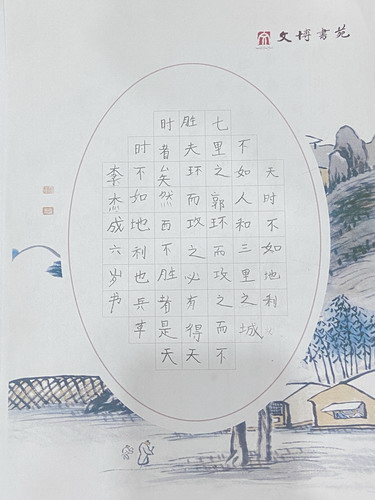 文博書苑
天时不如地利
不如人和三里之城
七里之郭环而攻之而不
胜夫环而攻之必有得天
时者矣然西不胜者是天
时不如地利也兵革
李杰成六岁书